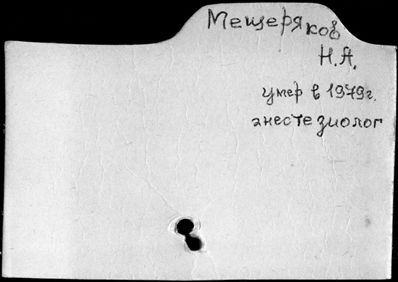 Мещеряков
Н.А.
умер в 1979г.
анестезиолог